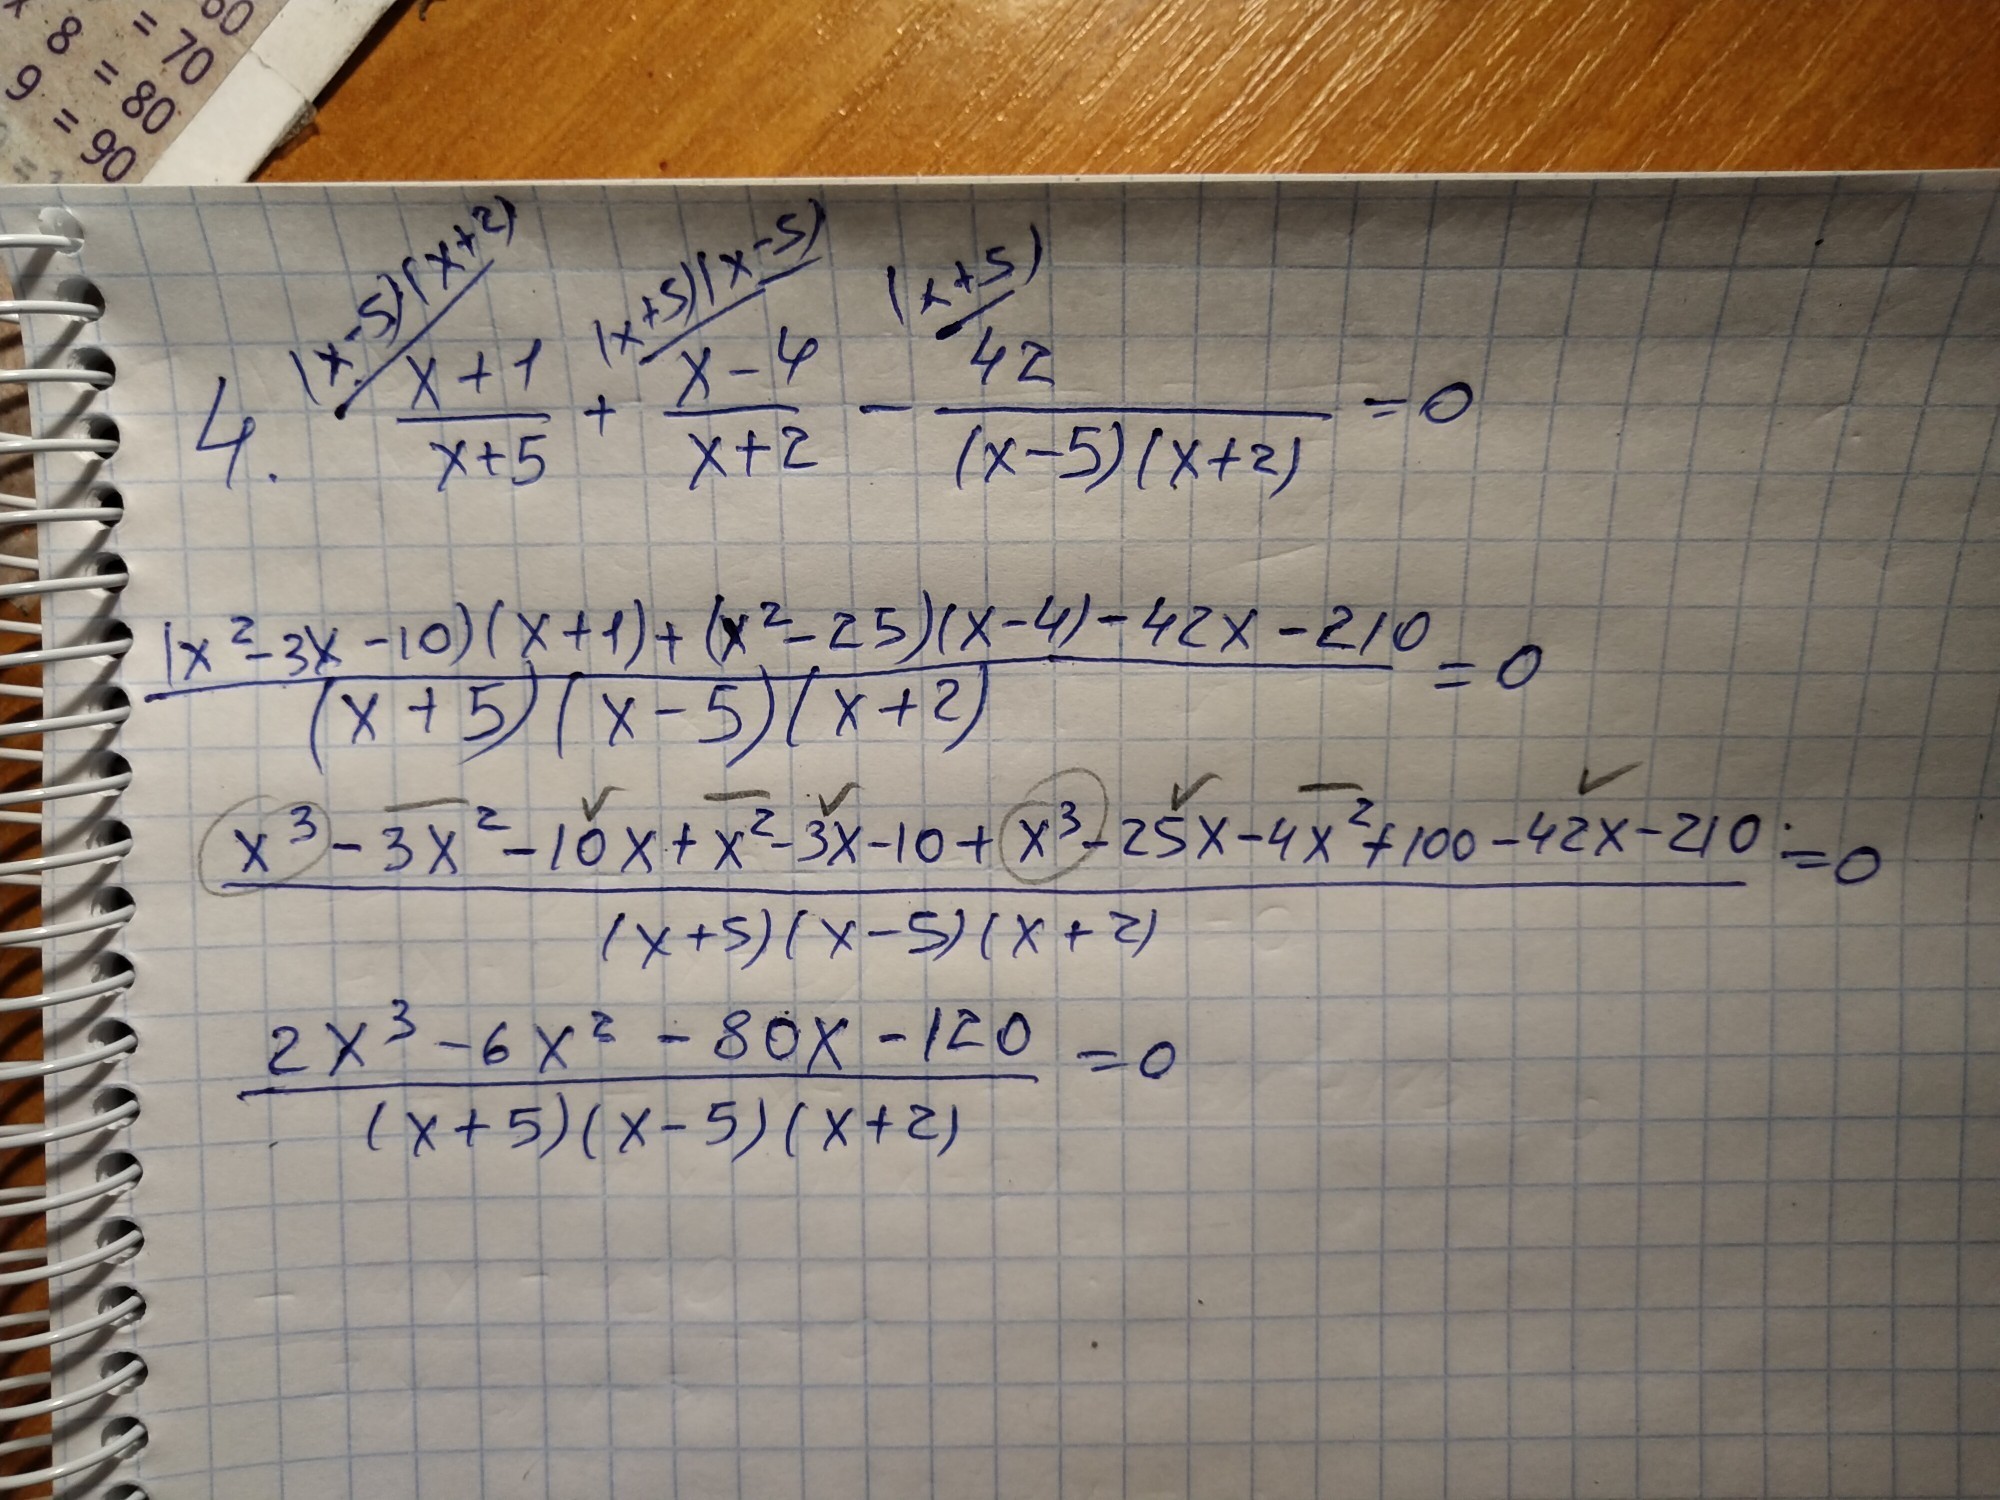 60
= 70
x 8 = 80
9 = 90
(x-5)(x+2) (x+5)(x-5) (x+5)
4. \frac{x+1}{x+5} + \frac{x-4}{x+2} - \frac{42}{(x-5)(x+2)} = 0
\frac{(x^2-3x-10)(x+1)+(x^2-25)(x-4)-42x-210}{(x+5)(x-5)(x+2)} = 0
\frac{x^3-3x^2-10x+x^2-3x-10+x^3-25x-4x^2+100-42x-210}{(x+5)(x-5)(x+2)} = 0
\frac{2x^3-6x^2-80x-120}{(x+5)(x-5)(x+2)} = 0